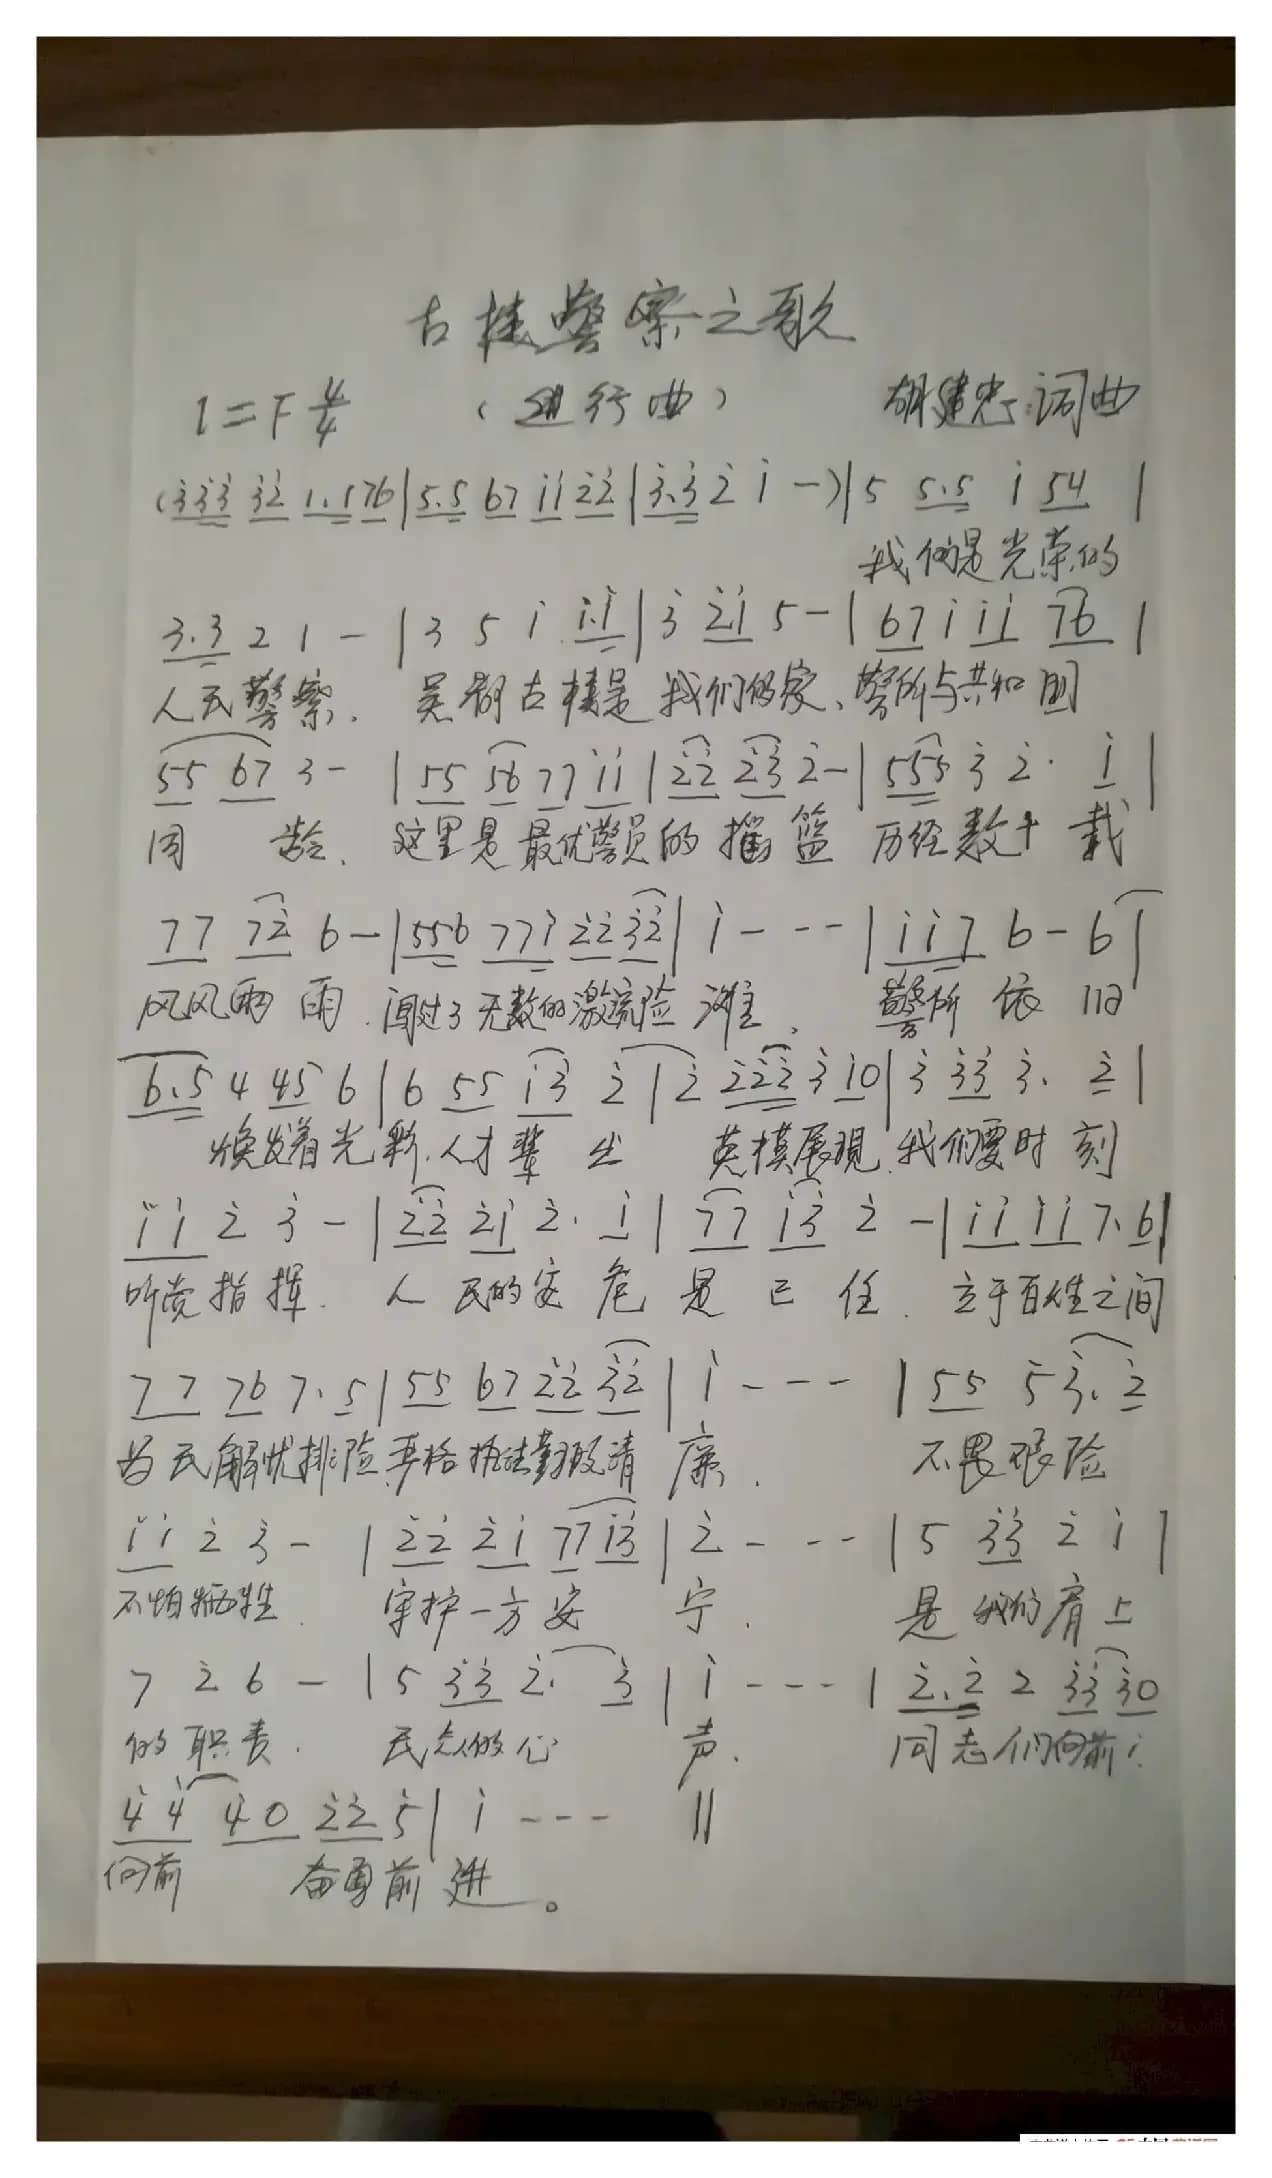 古楼警察之歌
1=F 4/4 （进行曲） 胡建忠:词曲
(3̇3̇3̇ 3̇2̇ 1.1 76|5.5 67 1̇1̇ 2̇2̇|3̇.3̇ 2̇ 1̇ -)|5 5.5 1̇ 54|
我们是光荣的
3.3 2 1 -|3 5 1̇ 1̇.1̇|3̇ 2̇1̇ 5 -|67 1̇ 1̇1̇ 76|
人民警察. 芜湖古楼是我们的家、警所与共和国
55 67 3 -|55 56 77 1̇1̇|2̇2̇ 2̇3̇ 2̇ -|555 3̇ 2̇. 1̇|
同 龄. 这里是最优警员的摇篮 历经数十载
77 72̇ 6 -|556 771̇ 2̇2̇ 3̇2̇|1̇ - - -|1̇1̇7 6 - 6|
风风雨雨. 闯过了无数的激流险滩. 警所依旧
6.5 4 45 6|6 55 1̇3̇ 2̇|2̇ 2̇2̇2̇ 3̇ 1̇0|3̇ 3̇3̇ 3̇. 2̇|
焕发着光彩.人才辈出 英模展现.我们要时刻
1̇1̇ 2̇ 3̇ -|2̇2̇ 2̇1̇ 2̇. 1̇|77 1̇3̇ 2̇ -|1̇1̇ 1̇1̇ 7. 6|
听党指挥. 人民的安危是已任. 立于百姓之间
77 76 7. 5|55 67 2̇2̇ 3̇2̇|1̇ - - -|55 5 3̇. 2̇
为民解忧排险.严格执法勤政清廉. 不畏艰险
1̇1̇ 2̇ 3̇ -|2̇2̇ 2̇1̇ 77 1̇3̇|2̇ - - -|5 3̇3̇ 2̇ 1̇|
不怕牺牲. 守护一方安宁. 是我们肩上
7 2̇ 6 -|5 3̇3̇ 2̇. 3̇|1̇ - - -|2̇.2̇ 2 3̇3̇ 3̇0
的职责. 民众的心声. 同志们向前;
4̇4̇ 4̇0 2̇2̇ 5̇|1̇ - - - ||
向前 奋勇前进。